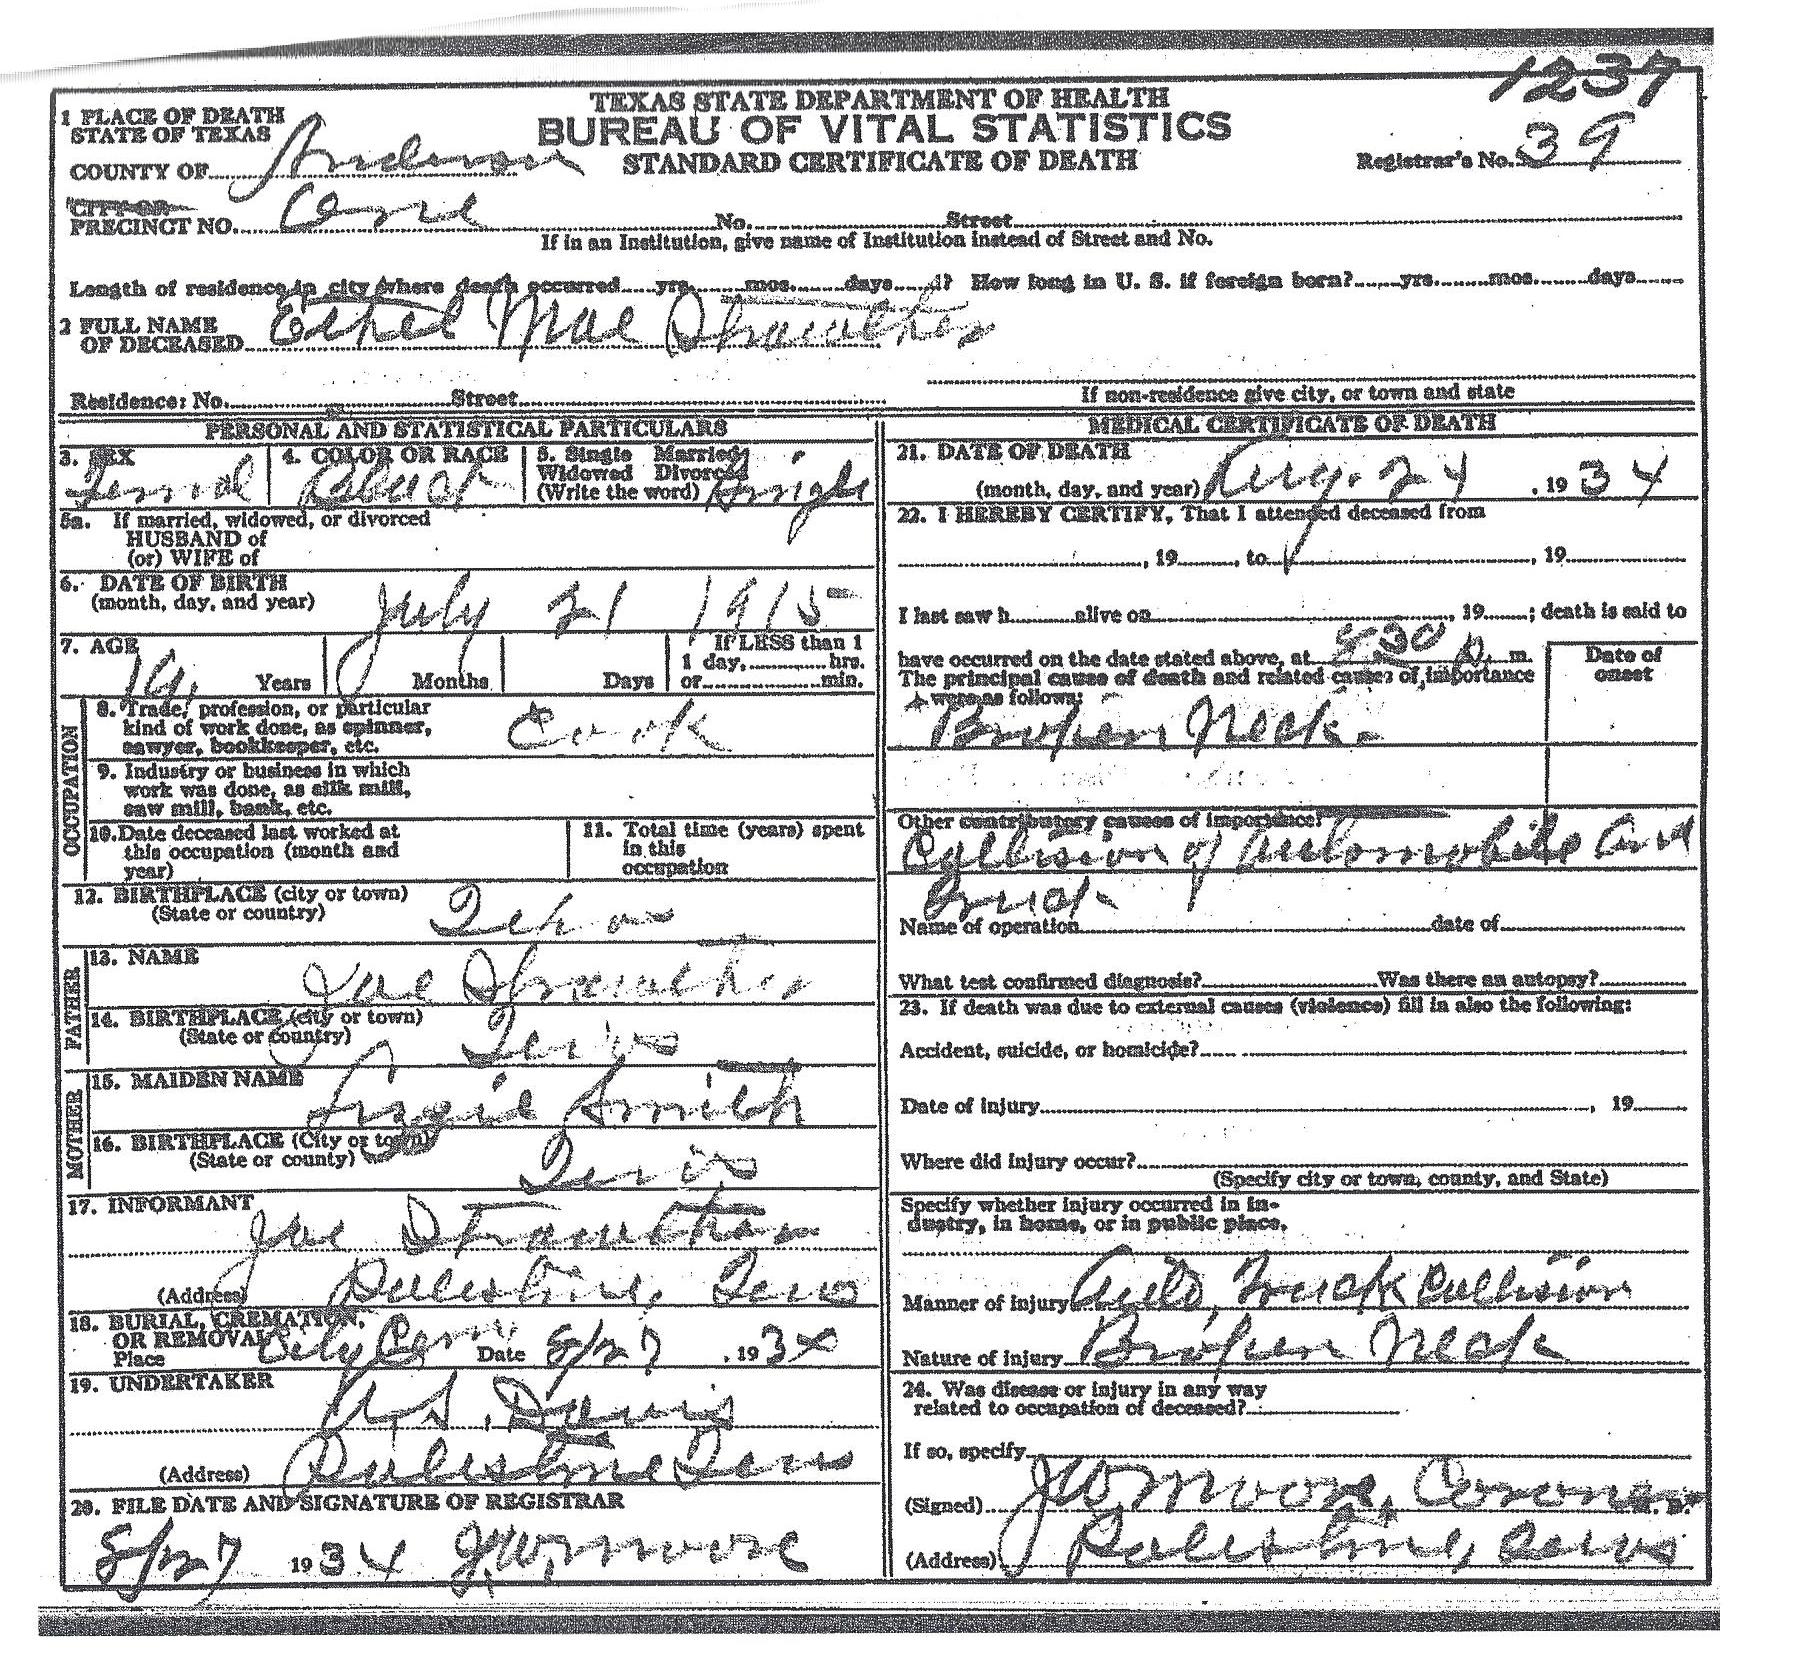 1237
TEXAS STATE DEPARTMENT OF HEALTH
BUREAU OF VITAL STATISTICS
STANDARD CERTIFICATE OF DEATH
Registrar's No. 39
1 PLACE OF DEATH
STATE OF TEXAS
COUNTY OF Anderson
CITY OR
PRECINCT NO. One No. Street
If in an Institution, give name of Institution instead of Street and No.
Length of residence in city where death occurred yrs. mos. days d? How long in U. S. if foreign born? yrs. mos. days
2 FULL NAME
OF DECEASED Ethel Mae Strawther
Residence: No. Street
If non-residence give city, or town and state
PERSONAL AND STATISTICAL PARTICULARS
3. SEX
Femal
4. COLOR OR RACE
Black
5. Single Married
Widowed Divorced
(Write the word) Single
5a. If married, widowed, or divorced
HUSBAND of
(or) WIFE of
6. DATE OF BIRTH
(month, day, and year) July 21 1915
7. AGE
19, Years Months Days
IF LESS than 1
1 day, hrs.
or min.
OCCUPATION
8. Trade, profession, or particular
kind of work done, as spinner,
sawyer, bookkeeper, etc. Cook
9. Industry or business in which
work was done, as silk mill,
saw mill, bank, etc.
10. Date deceased last worked at
this occupation (month and
year)
11. Total time (years) spent
in this
occupation
12. BIRTHPLACE (city or town)
(State or country) Texas
FATHER
13. NAME Joe Strawther
14. BIRTHPLACE (city or town)
(State or country) Texas
MOTHER
15. MAIDEN NAME Smith
16. BIRTHPLACE (City or town)
(State or county) Texas
17. INFORMANT
Joe Strawther
(Address) Palestine, Texas
18. BURIAL, CREMATION,
OR REMOVAL
Place City Cem. Date 8/27, 1934
19. UNDERTAKER
A.S. Davis
(Address) Palestine Texas
20. FILE DATE AND SIGNATURE OF REGISTRAR
8/27 1934 J.W. Moore
MEDICAL CERTIFICATE OF DEATH
21. DATE OF DEATH
(month, day, and year) Aug. 24, 1934
22. I HEREBY CERTIFY, That I attended deceased from
, 19 , to , 19
I last saw h alive on , 19 ; death is said to
have occurred on the date stated above, at 830 p. m.
The principal cause of death and related causes of importance
were as follows:
Date of
onset
Broken Neck.
Other contributory causes of importance:
Collision of Automobile and
Truck.
Name of operation date of
What test confirmed diagnosis? Was there an autopsy?
23. If death was due to external causes (violence) fill in also the following:
Accident, suicide, or homicide?
Date of injury , 19
Where did injury occur?
(Specify city or town, county, and State)
Specify whether injury occurred in in-
dustry, in home, or in public place.
Manner of injury Auto, Truck Collision
Nature of injury Broken Neck
24. Was disease or injury in any way
related to occupation of deceased?
If so, specify
(Signed) J W Moore, Coroner M. D.
(Address) Palestine, Texas